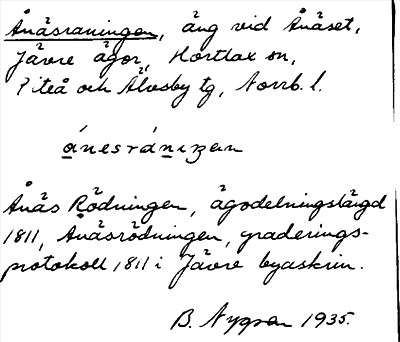 Ånäsraningen, äng vid Ånäset,
Jävre ägor, Hortlax sn,
Piteå och Älvsby tg, Norrb. l.
ånesrániŋan
Ånäs Rödningen, ägodelningslängd
1811, Ånäsrödningen, graderings-
protokoll 1811 i Jävre byaskrin.
B. Nygren 1935.